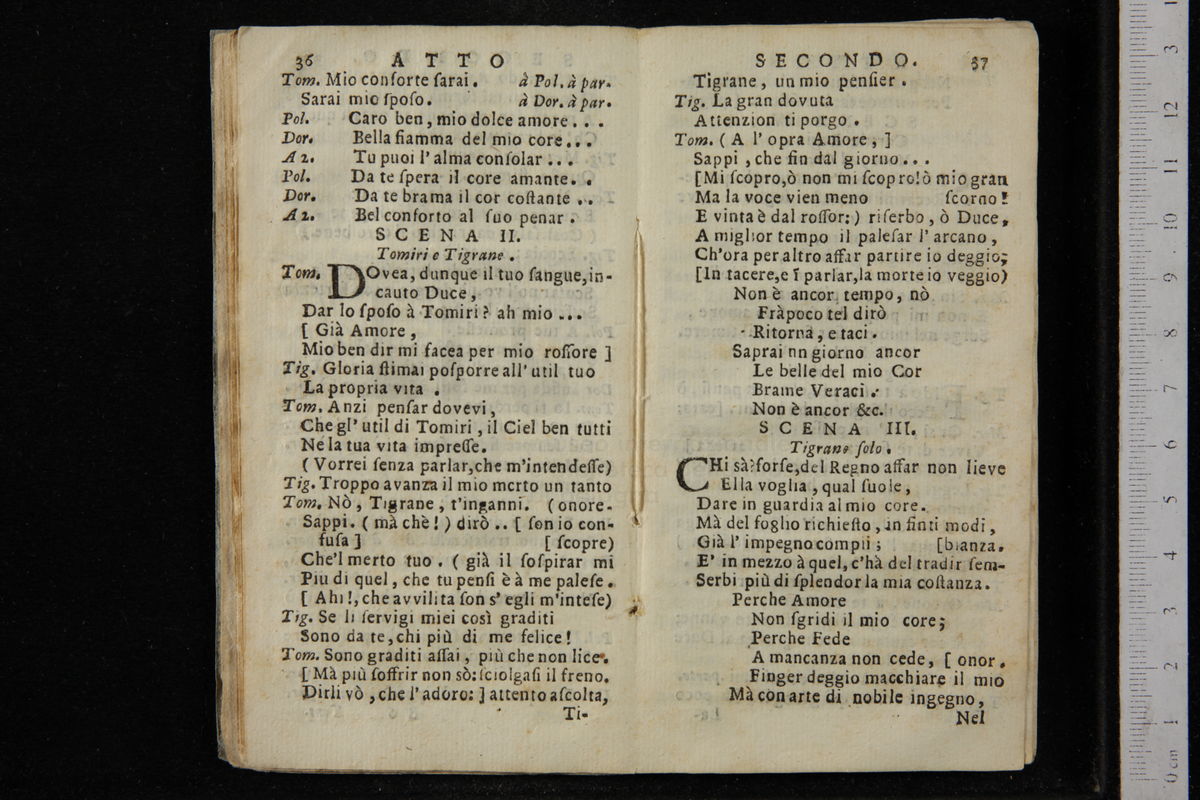 36 ATTO
Tom. Mio conſorte ſarai. à Pol. à par.
Sarai mio ſpoſo. à Dor. à par.
Pol. Caro ben, mio dolce amore...
Dor. Bella fiamma del mio core...
A 2. Tu puoi l'alma conſolar...
Pol. Da te ſpera il core amante..
Dor. Da te brama il cor coſtante..
A 2. Bel conforto al ſuo penar.
SCENA II.
Tomiri e Tigrane.
Tom. DOvea, dunque il tuo ſangue, in-
cauto Duce,
Dar lo ſpoſo à Tomiri? ah mio...
[ Già Amore,
Mio ben dir mi facea per mio roſſore ]
Tig. Gloria ſtimai poſporre all' util tuo
La propria vita.
Tom. Anzi penſar dovevi,
Che gl' util di Tomiri, il Ciel ben tutti
Ne la tua vita impreſſe.
(Vorrei ſenza parlar, che m'intendeſſe)
Tig. Troppo avanza il mio merto un tanto
Tom. Nò, Tigrane, t'inganni. (onore.
Sappi. ( mà chè! ) dirò.. [ ſon io con-
fuſa ] [ ſcopre)
Che'l merto tuo. ( già il ſoſpirar mi
Piu di quel, che tu penſi è à me paleſe.
[ Ahi!, che avvilita ſon s'egli m'inteſe)
Tig. Se li ſervigi miei così graditi
Sono da te, chi più di me felice!
Tom. Sono graditi aſſai, più che non lice.
[ Mà più ſoffrir non sò: ſciolgaſi il freno.
Dirli vò, che l'adoro: ] attento aſcolta,
Ti-
SECONDO. 37
Tigrane, un mio penſier.
Tig. La gran dovuta
Attenzion ti porgo.
Tom. ( A l'opra Amore, ]
Sappi, che fin dal giorno...
[Mi ſcopro, ò non mi ſcopro! ò mio gran
Ma la voce vien meno ſcorno!
E vinta è dal roſſor: ) riſerbo, ò Duce,
A miglior tempo il paleſar l'arcano,
Ch'ora per altro affar partire io deggio;
[In tacere, e ĩ parlar, la morte io veggio)
Non è ancor tempo, nò
Fràpoco tel dirò
Ritorna, e taci.
Saprai nn giorno ancor
Le belle del mio Cor
Brame Veraci.
Non è ancor &c.
SCENA III.
Tigrane ſolo.
CHi sà? forſe, del Regno affar non lieve
Ella voglia, qual ſuole,
Dare in guardia al mio core.
Mà del foglio richieſto, in finti modi,
Già l'impegno compii; [bianza.
E' in mezzo à quel, c'hà del tradir ſem-
Serbi più di ſplendor la mia coſtanza.
Perche Amore
Non ſgridi il mio core;
Perche Fede
A mancanza non cede, [ onor.
Finger deggio macchiare il mio
Mà con arte di nobile ingegno,
Nel